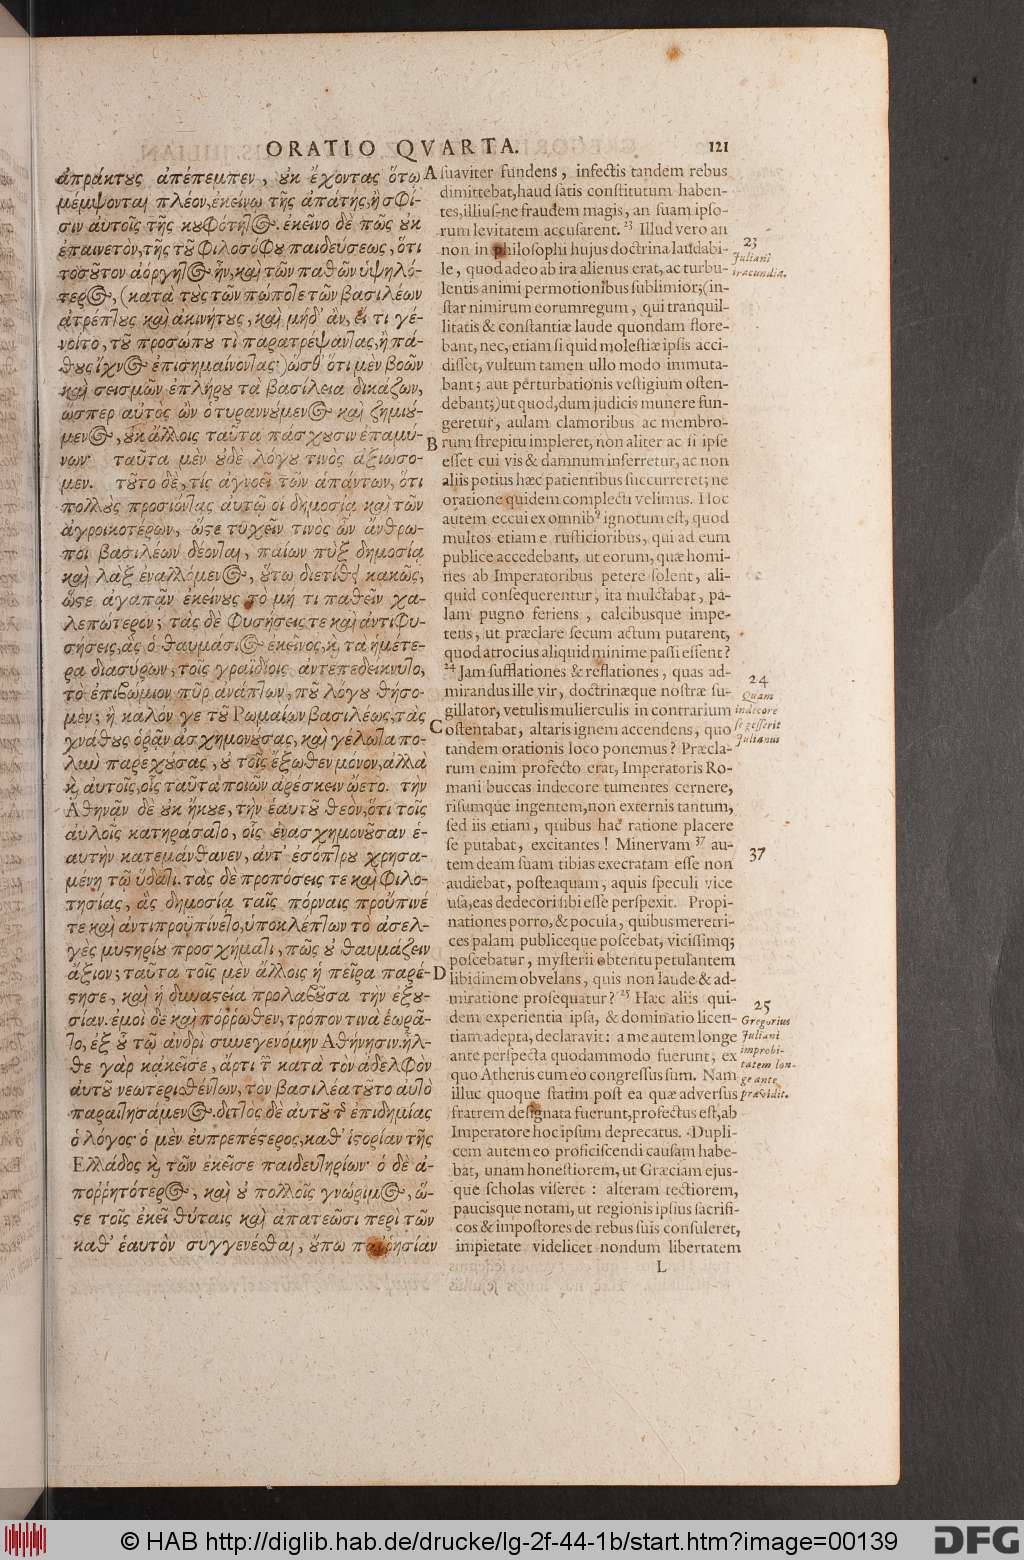 ORATIO QVARTA. 121
ἀπράκτους ἀπέπεμπεν, οὐκ ἔχοντας ὅτῳ
μέμψονται πλέον, ἐκείνῳ τῆς ἀπάτης, ἢ σφί-
σιν αὐτοῖς τῆς κουφότητος. ἐκεῖνο δὲ πῶς οὐκ
ἐπαινετὸν, τῆς τοῦ φιλοσόφου παιδεύσεως, ὅτι
τοσοῦτον ἀόργητος ἦν, καὶ τῶν παθῶν ὑψηλό-
τερος, (κατὰ τοὺς τῶν πώποτε τῶν βασιλέων
ἀτρέπτους καὶ ἀκινήτους, καὶ μηδ' ἂν, εἴ τι γέ-
νοιτο, τοῦ προσώπου τὶ παρατρέψαντας, ἢ πά-
θους ἴχνος ἐπισημαίνοντας·) ὥσθ' ὅτι μὲν βοῶν
καὶ σεισμῶν ἐπλήρου τὰ βασίλεια δικάζων,
ὥσπερ αὐτὸς ὢν ὁ τυραννούμενος καὶ ζημιού-
μενος, οὐκ ἄλλοις ταῦτα πάσχουσιν ἐπαμύ-
νων· ταῦτα μὲν οὐδὲ λόγου τινὸς ἀξιώσο-
μεν. τοῦτο δὲ, τίς ἀγνοεῖ τῶν ἀπάντων, ὅτι
πολλοὺς προσιόντας αὐτῷ οἱ δημοσίᾳ καὶ τῶν
ἀγροικοτέρων, ὥστε τυχεῖν τινος ὧν ἄνθρω-
ποι βασιλέων δέονται, παίων πὺξ δημοσίᾳ
καὶ λὰξ ἐναλλόμενος, οὕτω διετίθει κακῶς,
ὥστε ἀγαπᾷν ἐκείνους τὸ μή τι παθεῖν χα-
λεπώτερον; τὰς δὲ φυσήσεις τε καὶ ἀντιφυ-
σήσεις, ἃς ὁ θαυμάσιος ἐκεῖνος, καὶ τὰ ἡμέτε-
ρα διασύρων, τοῖς γραϊδίοις ἀντεπεδείκνυτο,
τὸ ἐπιβώμιον πῦρ ἀνάπτων, ποῦ λόγου θήσο-
μεν; ἢ καλόν γε τοῦ Ῥωμαίων βασιλέως, τὰς
γνάθους ὁρᾷν ἀσχημονούσας, καὶ γέλωτα πο-
λὺν παρεχούσας, οὐ τοῖς ἔξωθεν μόνον, ἀλλὰ
καὶ αὐτοῖς, οἷς ταῦτα ποιῶν ἀρέσκειν ᾤετο. τὴν
Ἀθηνᾶν δὲ οὐκ ἤκουε, τὴν ἑαυτοῦ θεὸν, ὅτι τοῖς
αὐλοῖς κατηράσατο, οἷς ἐνασχημονοῦσαν ἑ-
αυτὴν κατεμάνθανεν, ἀντ' ἐσόπτρου χρησα-
μένη τῷ ὕδατι. τὰς δὲ προπόσεις τε καὶ φιλο-
τησίας, ἃς δημοσίᾳ ταῖς πόρναις προὔπινέ
τε καὶ ἀντιπροϋπίνετο, ὑποκλέπτων τὸ ἀσελ-
γὲς μυστηρίου προσχήματι, πῶς οὐ θαυμάζειν
ἄξιον; ταῦτα τοῖς μὲν ἄλλοις ἡ πεῖρα παρέ-
στησε, καὶ ἡ δυναστεία προλαβοῦσα τὴν ἐξου-
σίαν. ἐμοὶ δὲ καὶ πόῤῥωθεν, τρόπον τινὰ ἑωρᾶ-
το, ἐξ οὗ τῷ ἀνδρὶ συνεγενόμην Ἀθήνησιν. ἦλ-
θε γὰρ κἀκεῖσε, ἄρτι τῶν κατὰ τὸν ἀδελφὸν
αὐτοῦ νεωτερισθέντων, τὸν βασιλέα τοῦτο αὐτὸ
παραιτησάμενος. διττὸς δὲ αὐτοῦ τῆς ἐπιδημίας
ὁ λόγος· ὁ μὲν εὐπρεπέστερος, καθ' ἱστορίαν τῆς
Ἑλλάδος καὶ τῶν ἐκεῖσε παιδευτηρίων· ὁ δὲ ἀ-
ποῤῥητότερος, καὶ οὐ πολλοῖς γνώριμος, ὥ-
στε τοῖς ἐκεῖ θύταις καὶ ἀπατεῶσι περὶ τῶν
καθ' ἑαυτὸν συγγενέσθαι, οὔπω παῤῥησίαν
A suaviter fundens, infectis tandem rebus
dimittebat, haud satis constitutum haben-
tes, illius-ne fraudem magis, an suam ipso-
rum levitatem accusarent. 23 Illud vero an
non in philosophi hujus doctrina laudabi-
le, quod adeo ab ira alienus erat, ac turbu-
lentis animi permotionibus sublimior; (in-
star nimirum eorum regum, qui tranquil-
litatis & constantiæ laude quondam flore-
bant, nec, etiam si quid molestiæ ipsis acci-
disset, vultum tamen ullo modo immuta-
bant; aut perturbationis vestigium osten-
debant;) ut quod, dum judicis munere fun-
geretur, aulam clamoribus ac membro-
B rum strepitu impleret, non aliter ac si ipse
esset cui vis & damnum inferretur, ac non
aliis potius hæc patientibus succurreret; ne
oratione quidem complecti velimus. Hoc
autem eccui ex omnibꝰ ignotum est, quod
multos etiam e rusticioribus, qui ad eum
publice accedebant, ut eorum, quæ homi-
nes ab Imperatoribus petere solent, ali-
quid consequerentur, ita mulctabat, pa-
lam pugno feriens, calcibusque impe-
tens, ut præclare secum actum putarent,
quod atrocius aliquid minime passi essent?
24 Jam sufflationes & reflationes, quas ad-
mirandus ille vir, doctrinæque nostræ su-
gillator, vetulis mulierculis in contrarium
C ostentabat, altaris ignem accendens, quo
tandem orationis loco ponemus? Præcla-
rum enim profecto erat, Imperatoris Ro-
mani buccas indecore tumentes cernere,
risumque ingentem, non externis tantum,
sed iis etiam, quibus hac ratione placere
se putabat, excitantes! Minervam 37 au-
tem deam suam tibias execratam esse non
audiebat, posteaquam, aquis speculi vice
usa, eas dedecori sibi esse perspexit. Propi-
nationes porro, & pocula, quibus meretri-
ces palam publiceque poscebat, vicissimq;
poscebatur, mysterii obtentu petulantem
D libidinem obvelans, quis non laude & ad-
miratione prosequatur? 25 Hæc aliis qui-
dem experientia ipsa, & dominatio licen-
tiam adepta, declaravit: a me autem longe
ante perspecta quodammodo fuerunt, ex
quo Athenis cum eo congressus sum. Nam
illuc quoque statim post ea quæ adversus
fratrem designata fuerunt, profectus est, ab
Imperatore hoc ipsum deprecatus. Dupli-
cem autem eo proficiscendi causam habe-
bat, unam honestiorem, ut Græciam ejus-
que scholas viseret: alteram tectiorem,
paucisque notam, ut regionis ipsius sacrifi-
cos & impostores de rebus suis consuleret,
impietate videlicet nondum libertatem
L
23
Juliani
iracundia.
24
Quam
indecore
se gesserit
Julianus
37
25
Gregorius
Juliani
improbi-
tatem lon-
ge ante
prævidit.
© HAB http://diglib.hab.de/drucke/lg-2f-44-1b/start.htm?image=00139
DFG